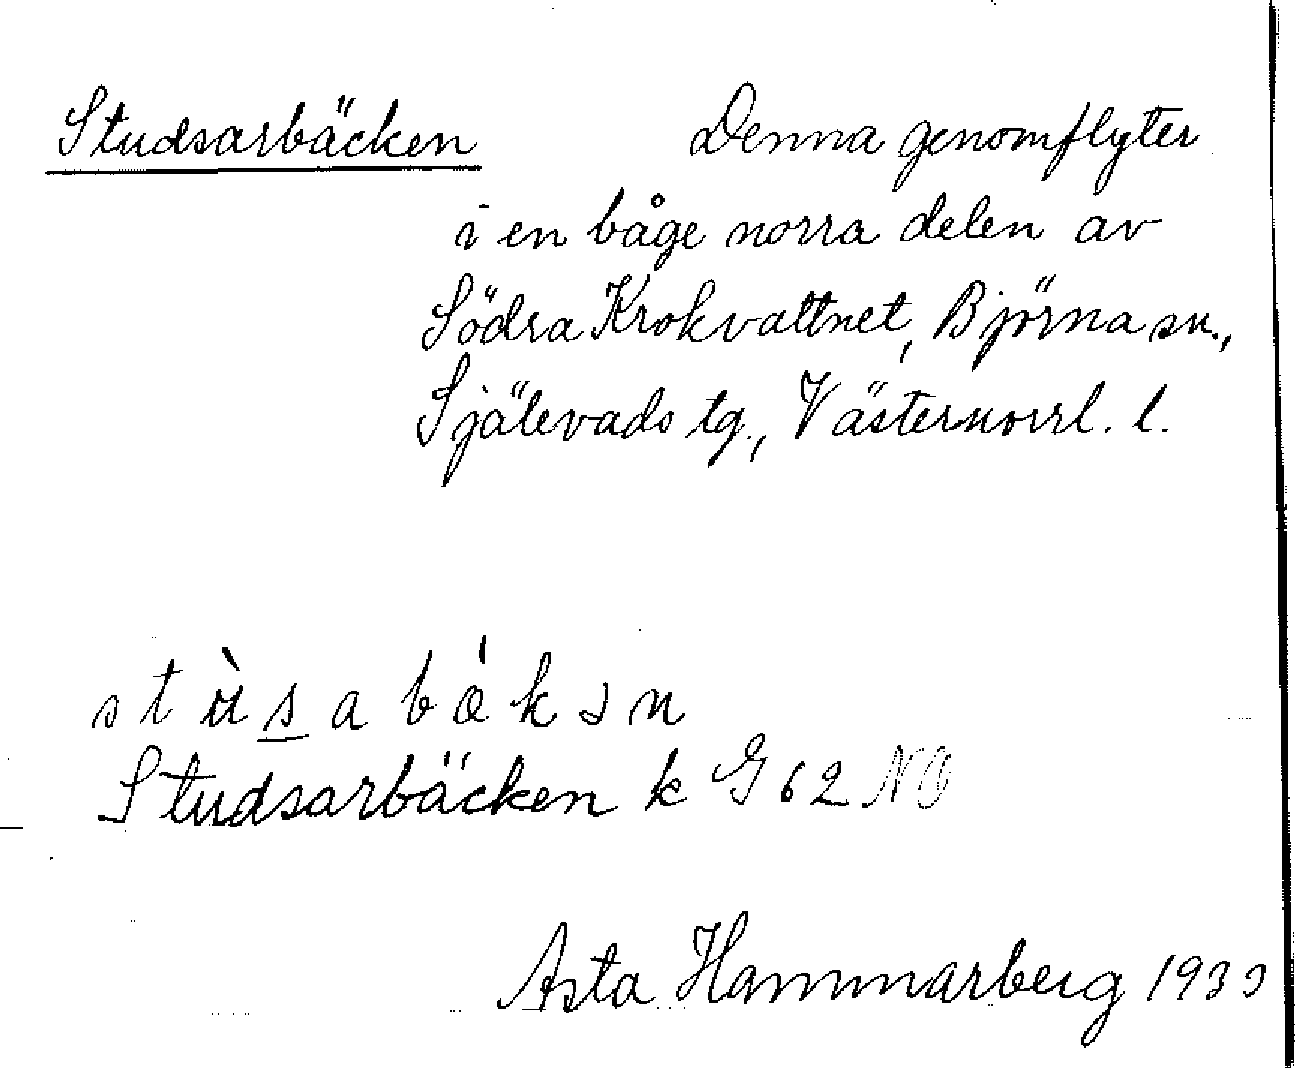 Studsarbäcken Denna genomflyter
i en båge norra delen av
Södra Krokvattnet, Björna sn.,
Själevads tg., Västernorrl. l.
stʉ̀sabǽkən
Studsarbäcken k G 62 NO
Asta Hammarberg